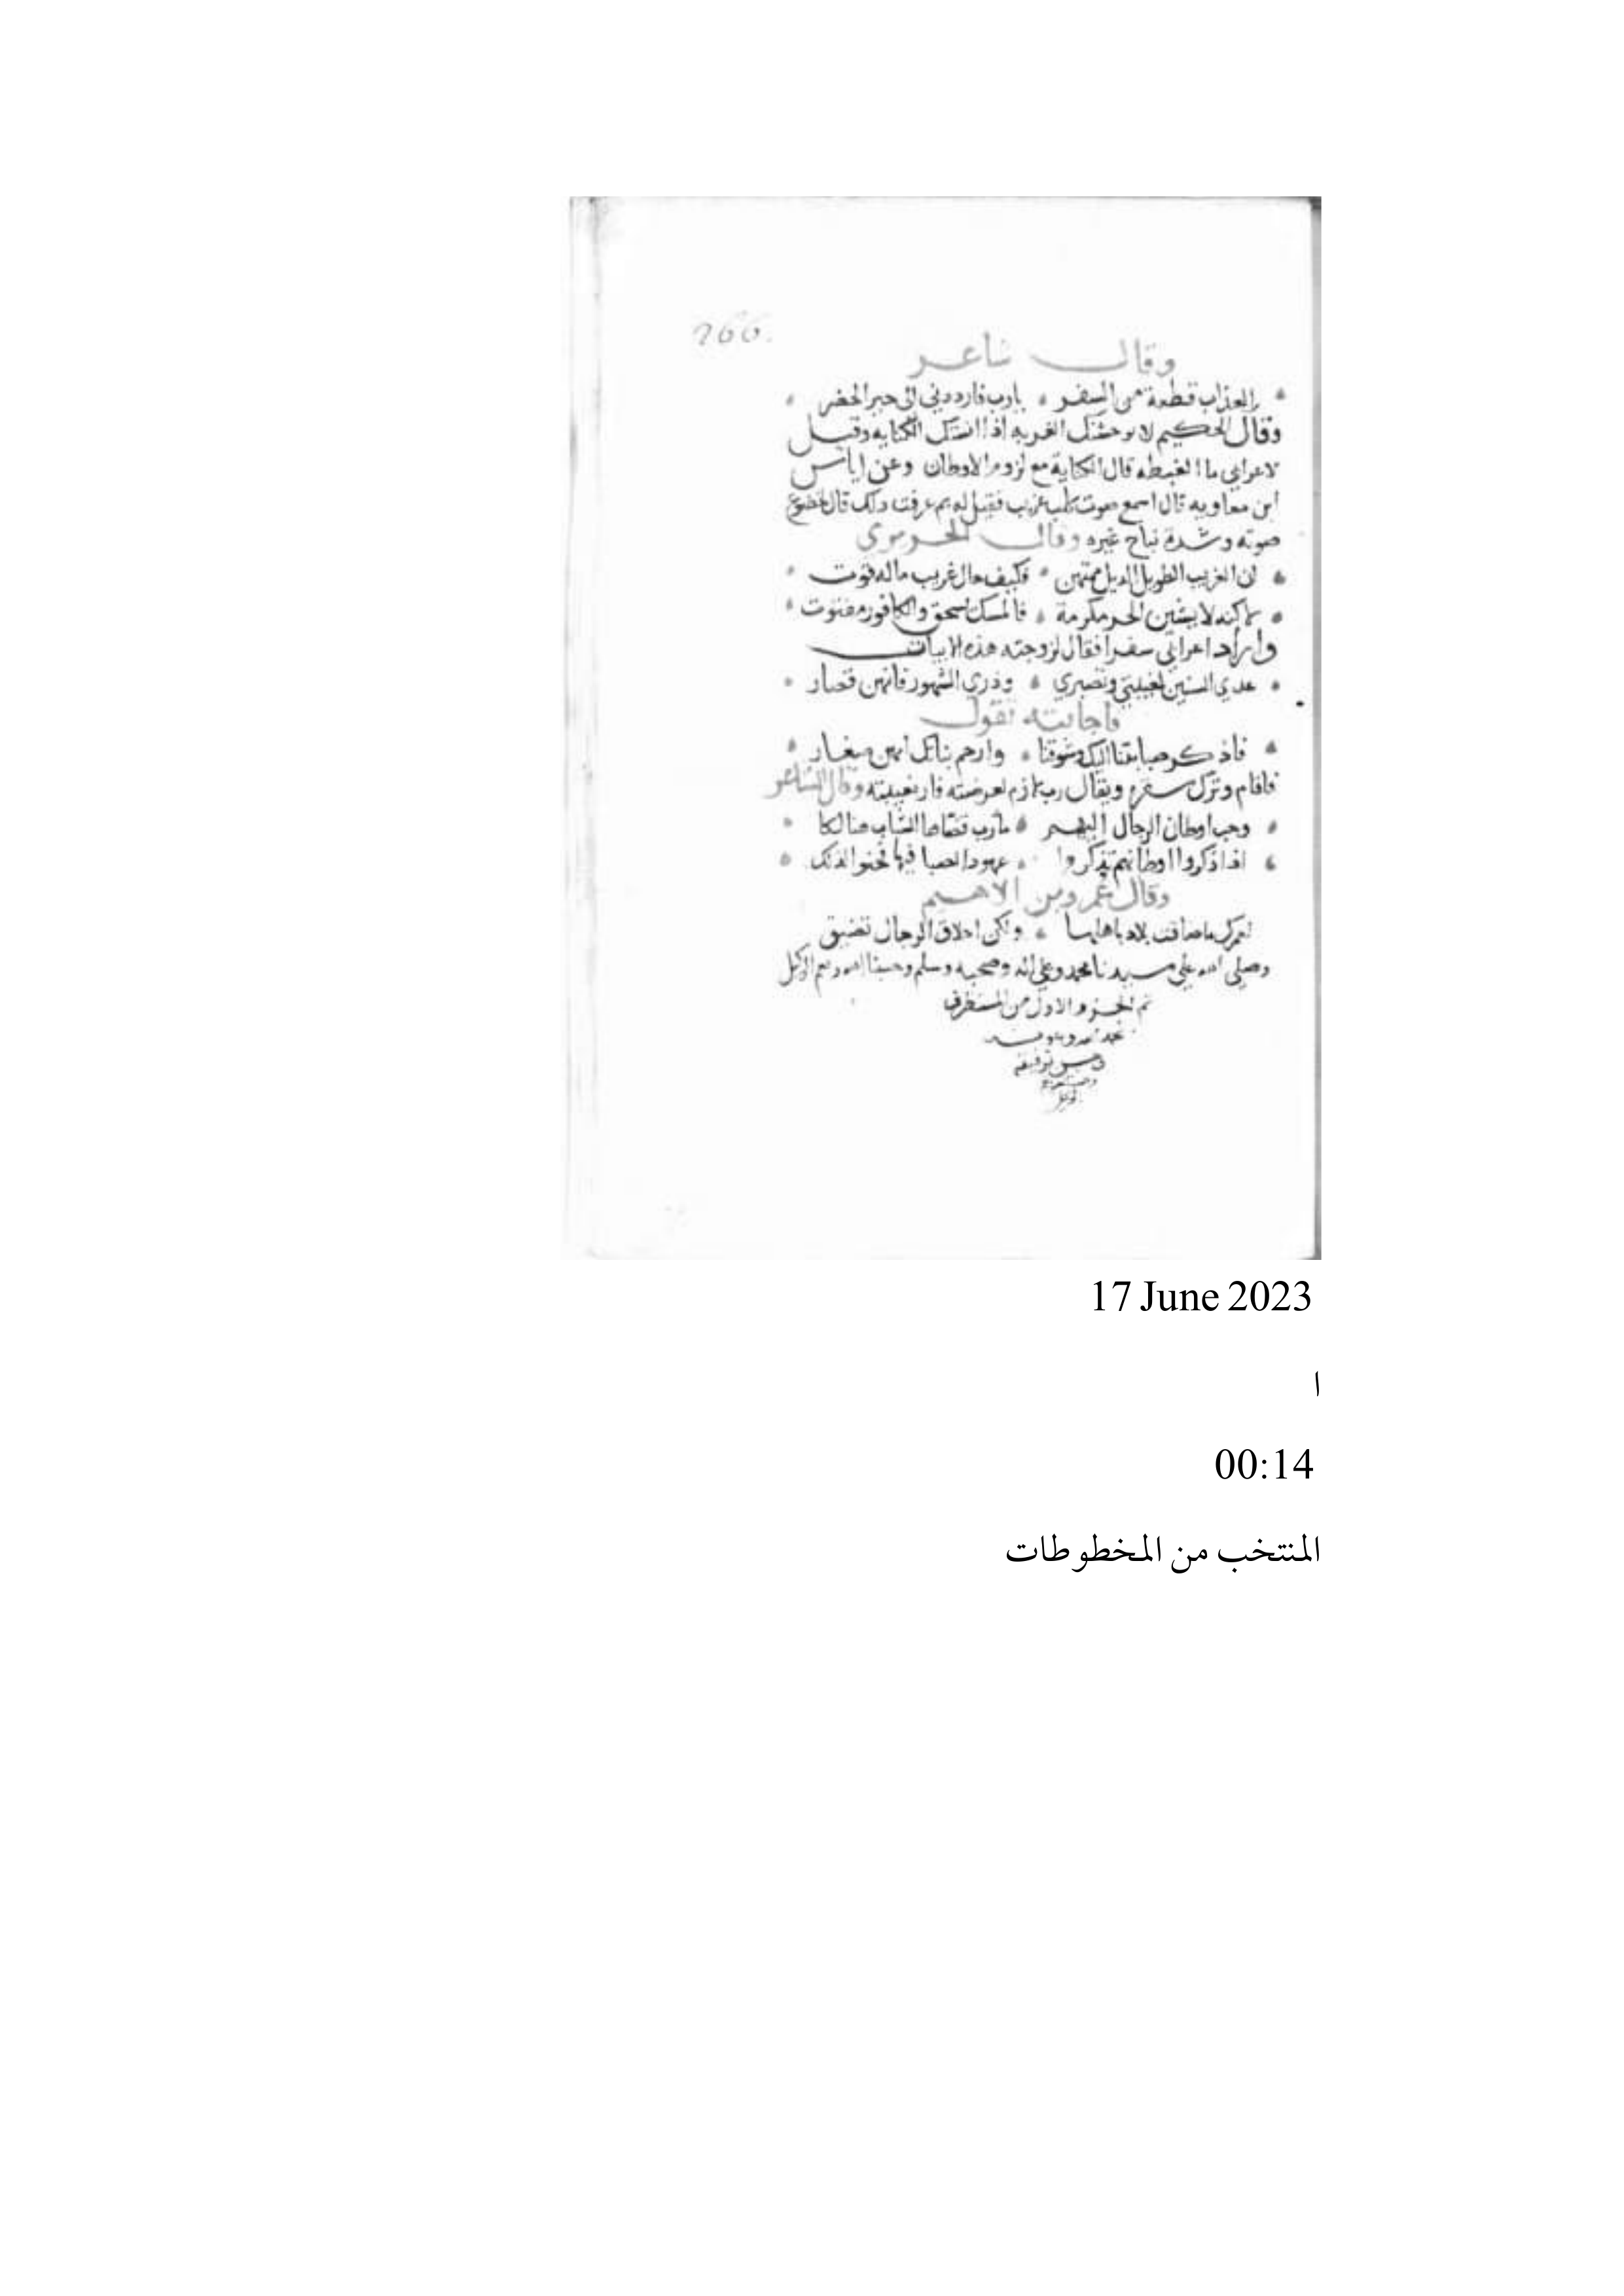 266.
وقال شاعر
ان العذاب قطعة من السفر يارب فارددني الى خير الحضر
وقال الحكيم لا توحشنك الغربه اذا انستك الكفايه وقيل
لاعرابي ما الغبطه قال الكفاية مع لزوم الاوطان وعن اياس
ابن معاويه قال اسمع صوت كلب غريب فقيل له بم عرفت ذلك قال بخضوع
صوته وشدة نباح غيره وقال
ان الغريب الطويل الذيل ممتهن فكيف حال غريب ماله قوت
لكنه لا يشين الحر مكرمة فالمسك يسحق والكافور مفتوت
واراد اعرابي سفرا فقال لزوجته هذه الابيات
عدي السنين لغيبتي وتصبري وذري الشهور فانهن قصار
فاجابته تقول
فاذكر صبابتنا اليك وشوقنا وارحم بناتك انهن صغار
فاقام وترك سفره ويقال رب ملازم لعرضته فاز ببغيته وقال الشاعر
وحب اوطان الرجال اليهم مآرب قضاها الشباب هنالكا
اذا ذكروا اوطانهم تذكروا عهود الصبا فيها فحنوا لذلك
وقال عمرو بن الاهتم
لعمرك ما ضاقت بلاد باهلها ولكن اخلاق الرجال تضيق
وصلى الله على سيدنا محمد وعلى اله وصحبه وسلم وحسبنا الله ونعم الوكيل
تم الجزء الاول من المستطرف
بحمد الله وعونه
وحسن توفيقه
17 June 2023
ا
00:14
المنتخب من المخطوطات